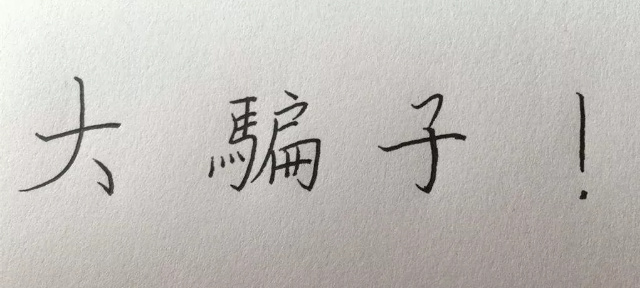 大騙子！